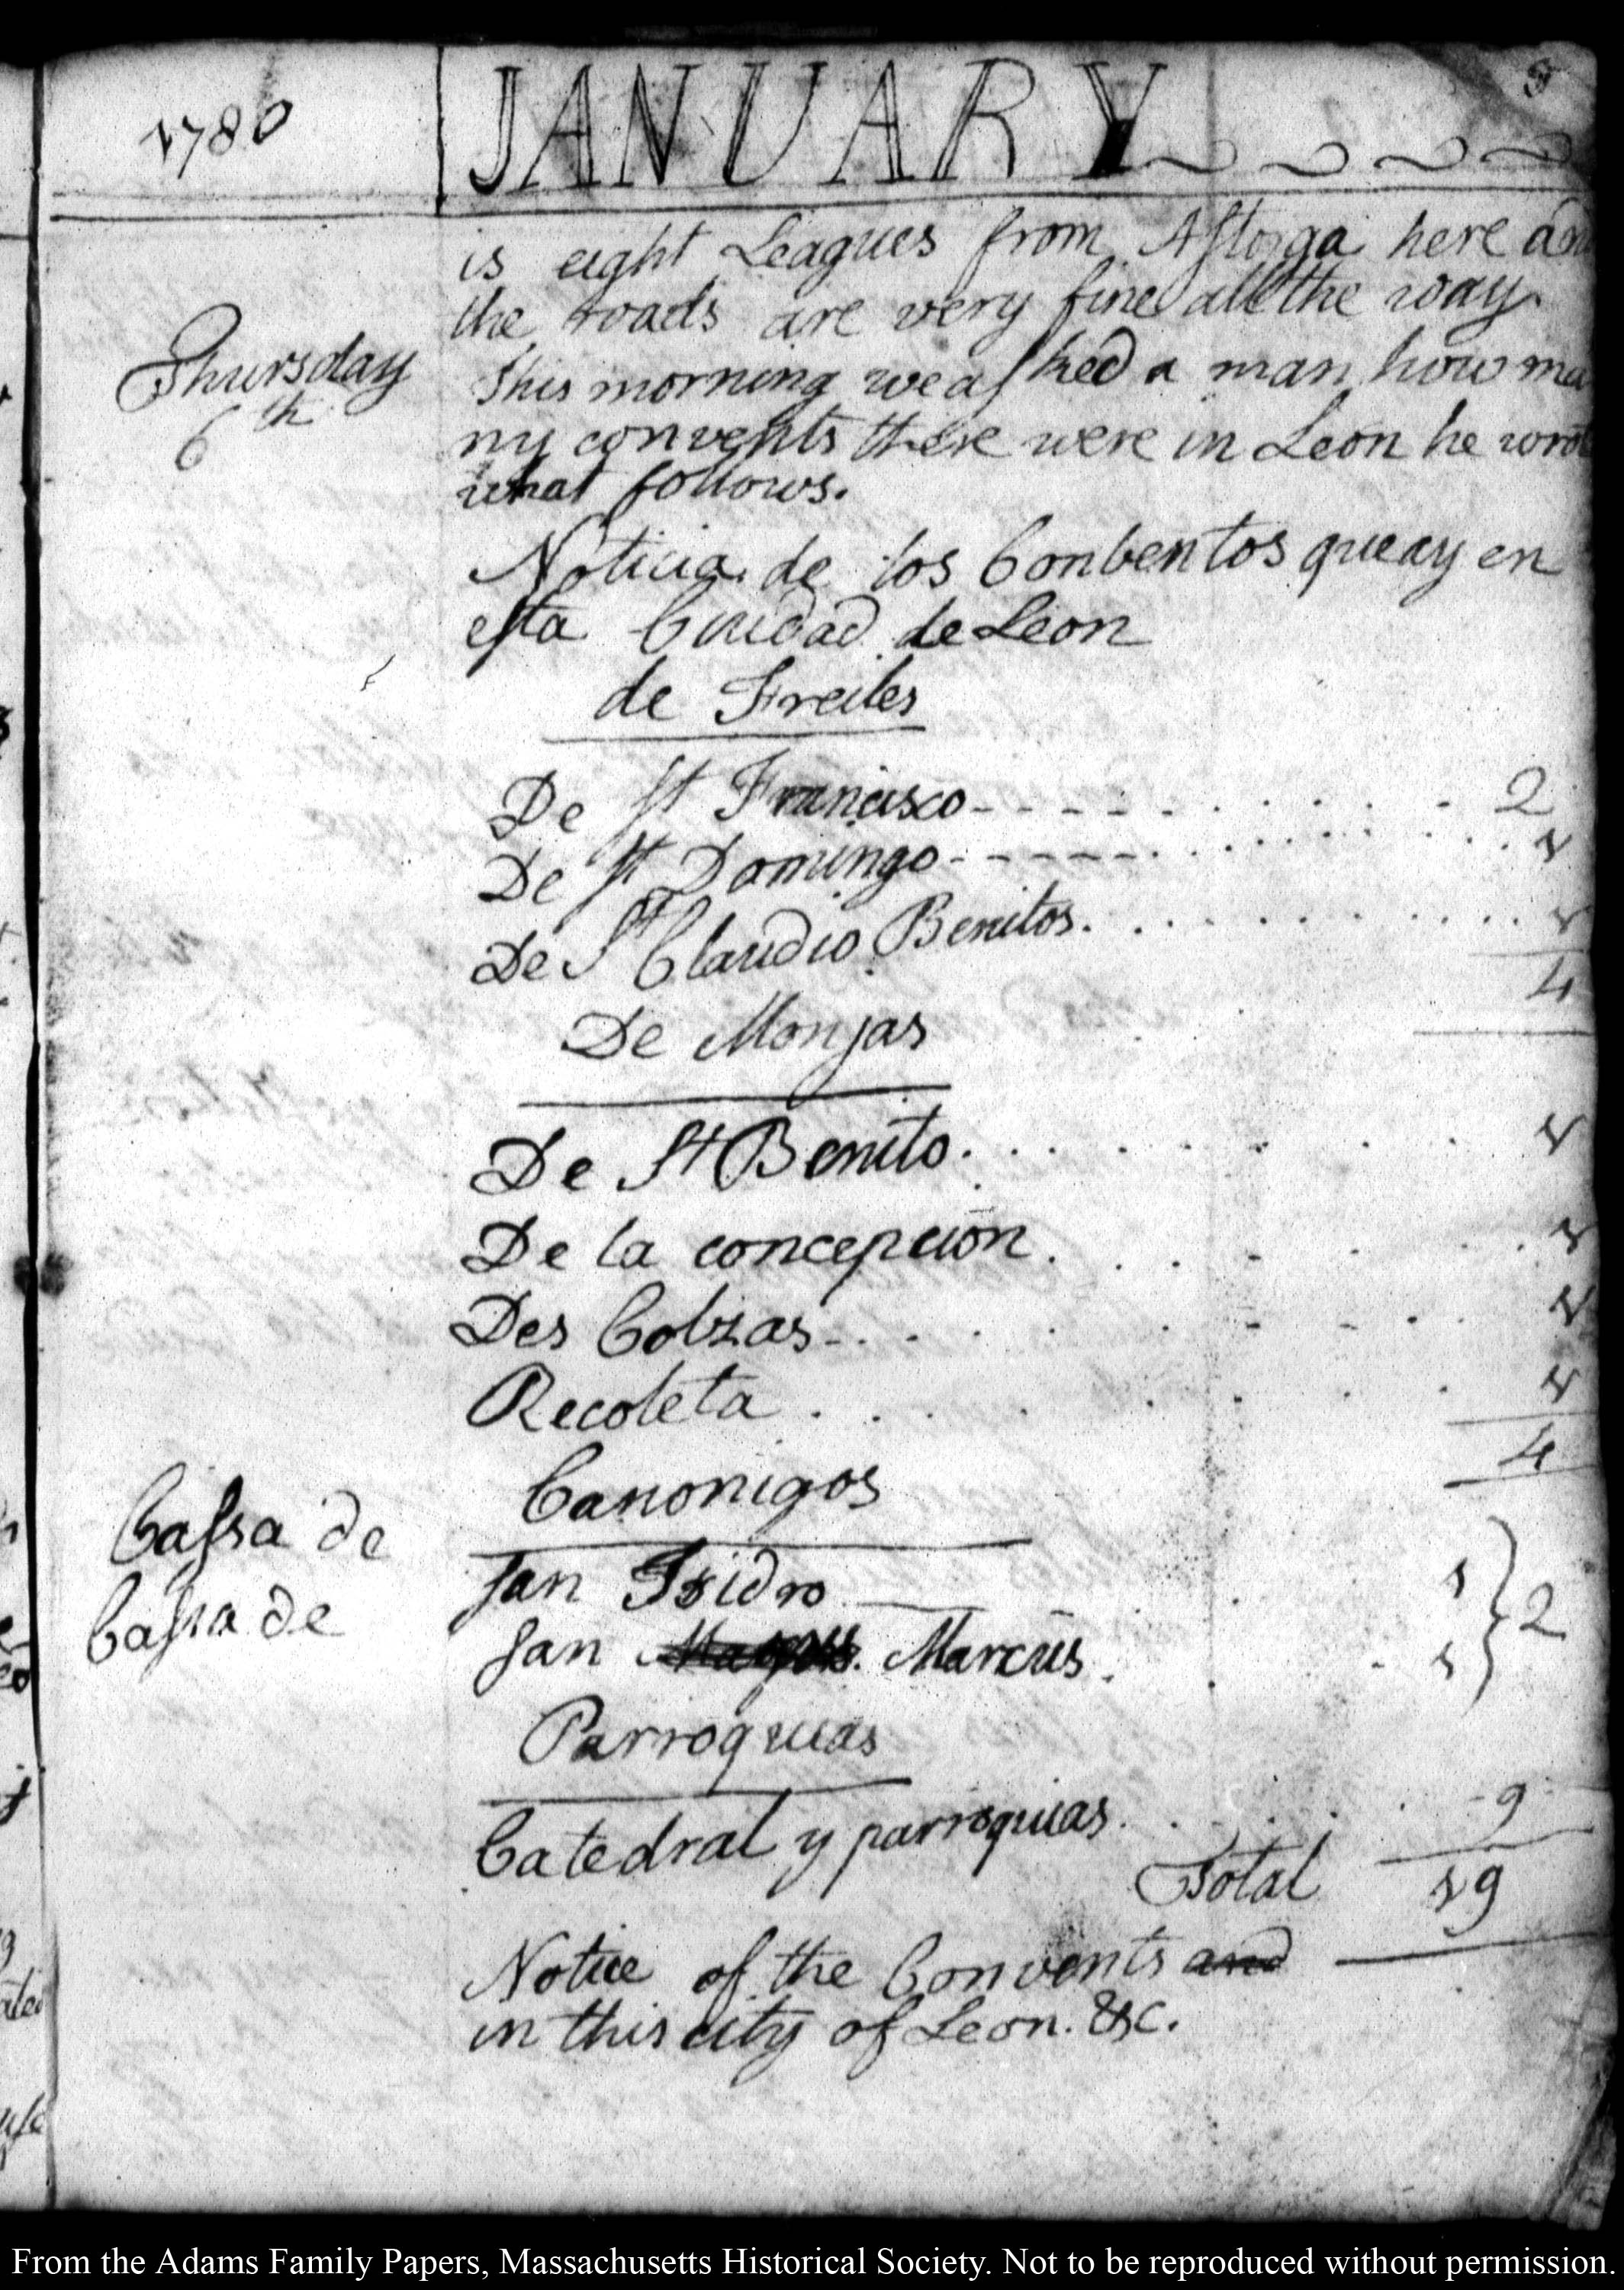 1780 JANUARY
is eight Leagues from Astorga here and
the roads are very fine all the way.
Thursday
6th
This morning we asked a man how ma
ny convents there were in Leon he wrote
what follows.
Noticia de los Conbentos que ay en
esta Ciudad de Leon
de Freiles
De St Francisco 2
De St Domingo 1
De St Claudio Benitos 1
4
De Monjas
De St Benito 1
De la concepcion 1
Des Colzas 1
Recoleta 1
4
Canonigos
Cassa de San Isidro 1
Cassa de San Marcus 1 } 2
Parroquias
Catedral y parroquias 9
Total 19
Notice of the Convents and
in this city of Leon. &c.
From the Adams Family Papers, Massachusetts Historical Society. Not to be reproduced without permission.